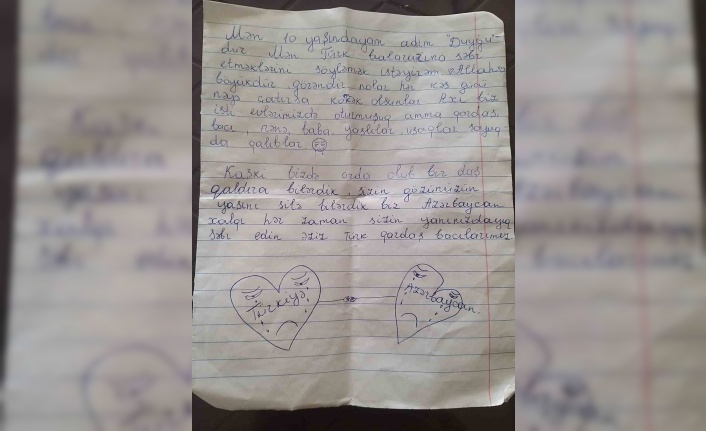 Mən 10 yaşındayam adım "Duyğu"-
dur Mən Türk balalarına səbr
etməklərini söyləmək istəyirəm Allah
böyükdür, görəndir nolar hər kəs gücü
nəyə çatırsa kömək olsunlar Axı biz
isti evlərimizdə oturmuşuq amma qardaş,
bacı, nənə, baba, yaşlılar, uşaqlar soyuq-
da qalıblar
Kaşki bizdə orda olub bir daş
qaldıra bilərdik, sizin gözünüzün
yaşını silə bilərdik biz Azərbaycan
xalqı hər zaman sizin yanınızdayıq
səbr edin əziz Türk qardaş bacılarımız
Türkiyə
Azərbaycan